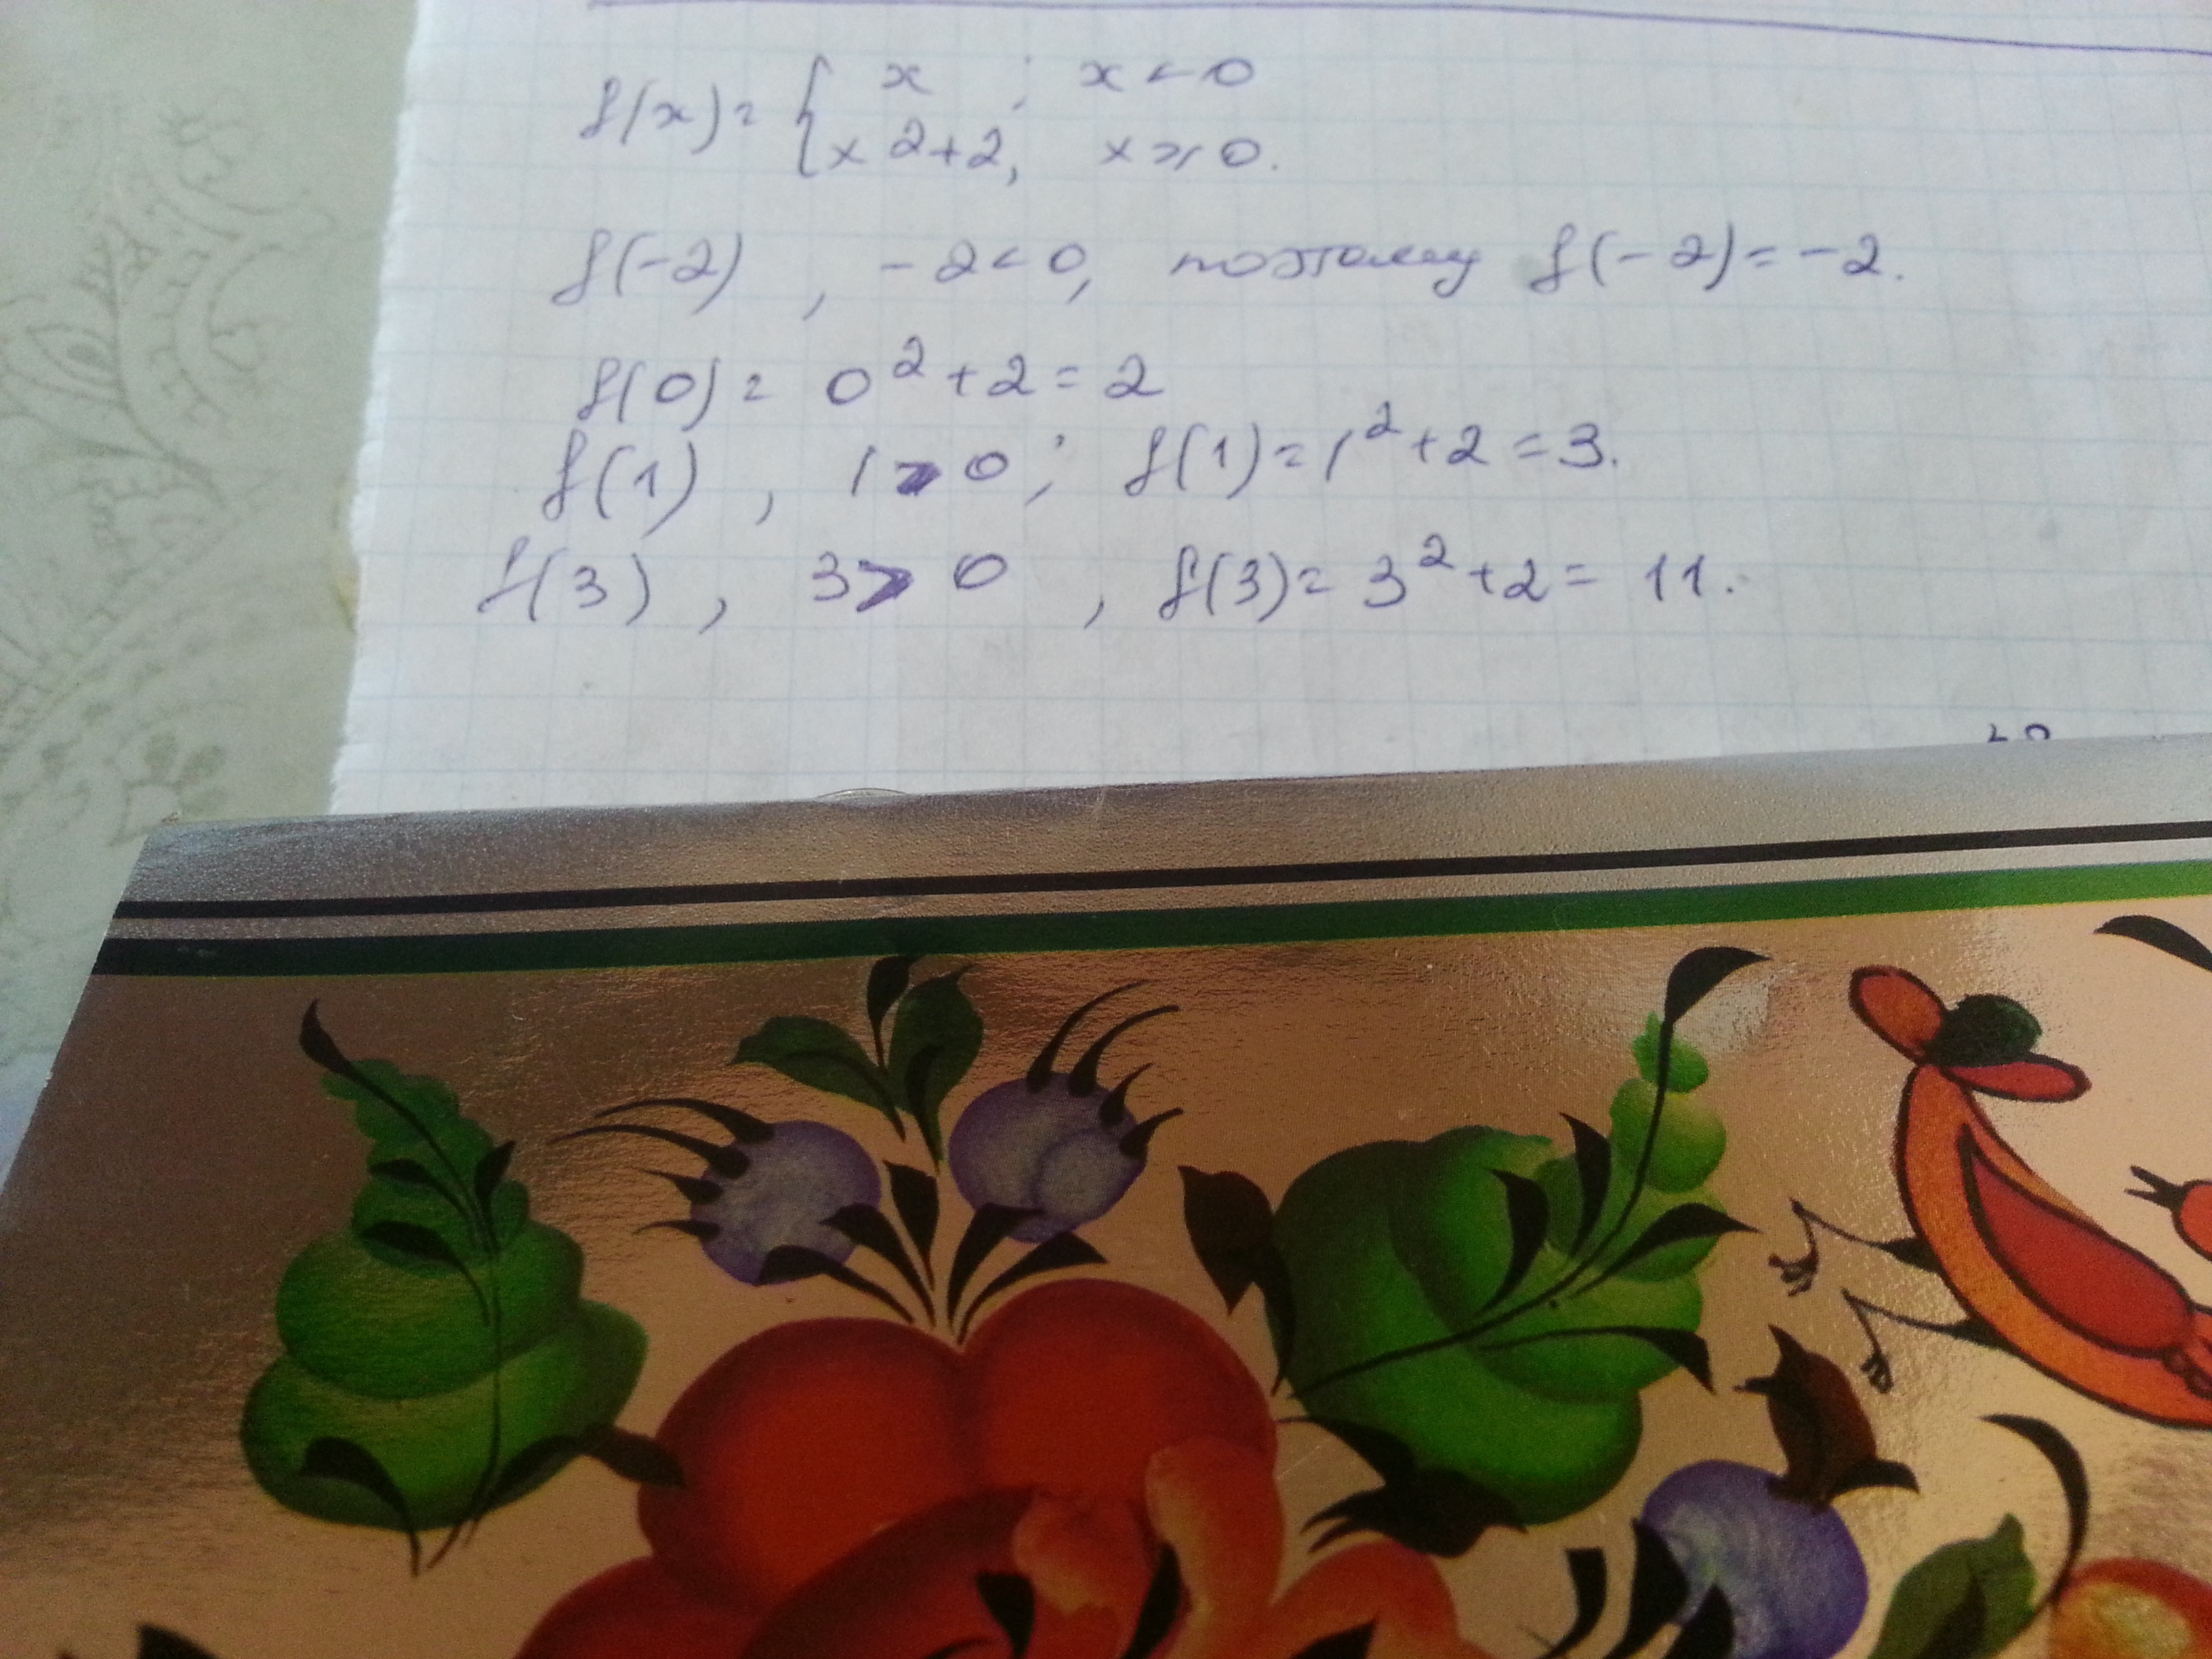 f(x) = { x ; x < 0
x2+2, x ⩾ 0.
f(-2) , -2<0, поэтому f(-2) = -2.
f(0) = 0² + 2 = 2
f(1) , 1 > 0 ; f(1) = 1² + 2 = 3.
f(3) , 3 > 0 , f(3) = 3² + 2 = 11.